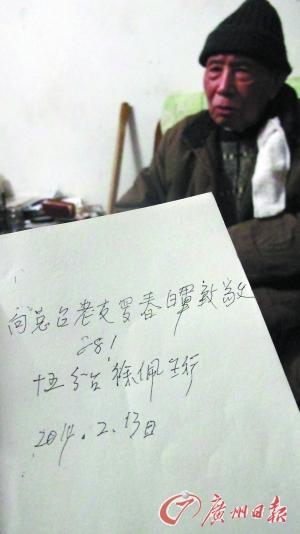 向总台老友罗春致敬
礼!
十五分台徐佩珩
2014.2.13日
廣州日报